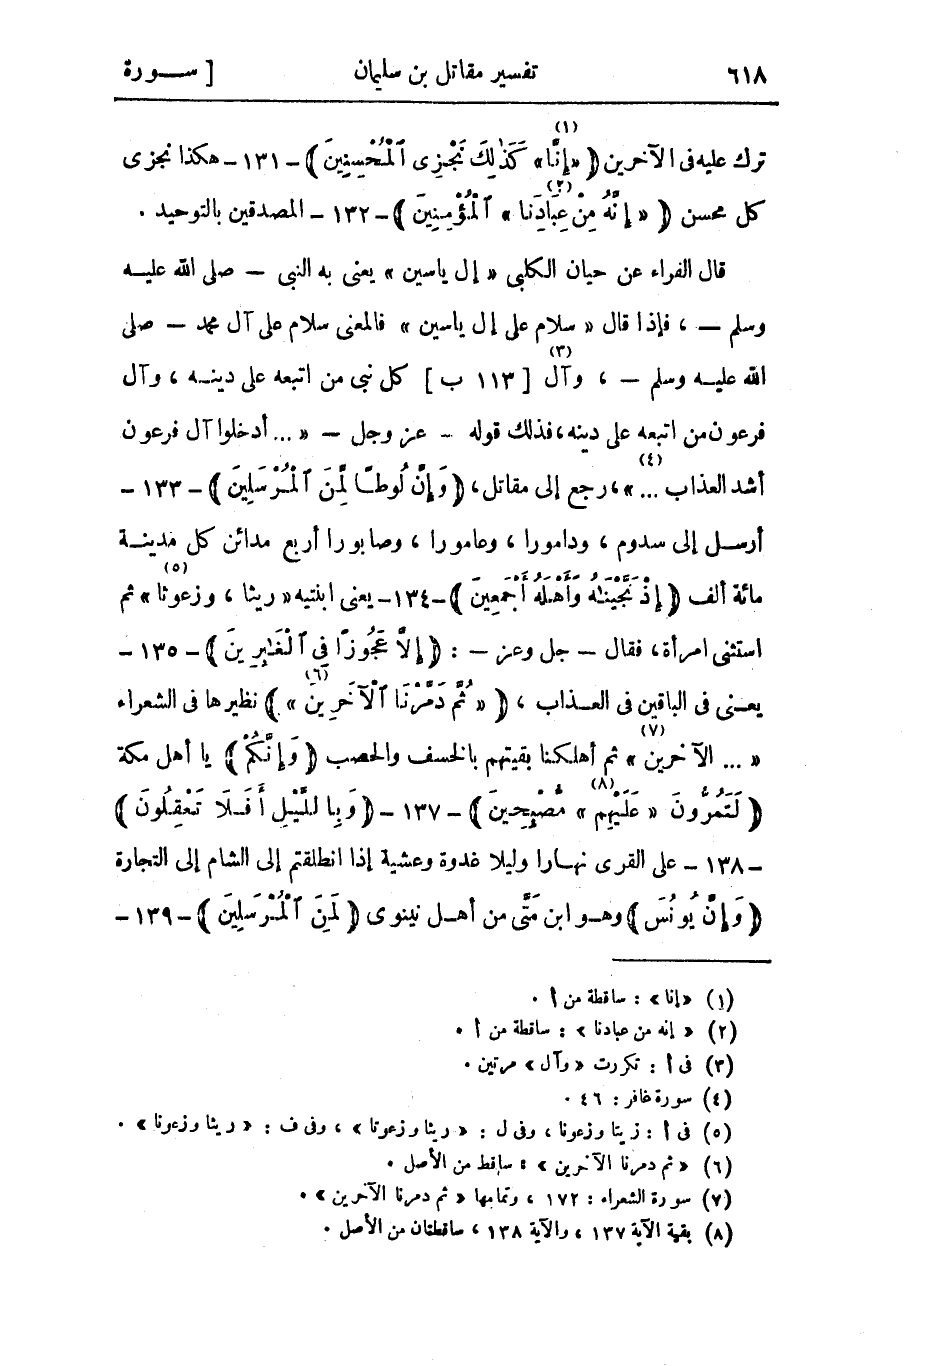 ٦١٨ تفسير مقاتل بن سليمان [ سـورة
ترك عليه فى الآخرين ﴿ «إِنَّا»(١) كَذَٰلِكَ نَجْزِى ٱلْمُحْسِنِينَ ﴾ - ١٣١ - هكذا نجزى
كل محسن ﴿ « إِنَّهُ مِنْ عِبَادِنَا »(٢) ٱلْمُؤْمِنِينَ ﴾ - ١٣٢ - المصدقين بالتوحيد .
قال الفراء عن حيان الكلبى « إل ياسين » يعنى به النبى — صلى الله عليه
وسلم — ، فإذا قال « سلام على إل ياسين » فالمعنى سلام على آل محمد — صلى
الله عليه وسلم — ، وآل(٣) [ ١١٣ ب ] كل نبى من اتبعه على دينه ، وآل
فرعون من اتبعه على دينه، فذلك قوله - عز وجل — « ... أدخلوا آل فرعون
أشد العذاب ... »(٤)، رجع إلى مقاتل، ﴿ وَإِنَّ لُوطًا لَّمِنَ ٱلْمُرْسَلِينَ ﴾ - ١٣٣ -
أرسل إلى سدوم ، ودامورا ، وعامورا ، وصابورا أربع مدائن كل مدينة
مائة ألف ﴿ إِذْ نَجَّيْنَٰهُ وَأَهْلَهُ أَجْمَعِينَ ﴾ - ١٣٤ - يعنى ابنتيه « ريثا ، وزعوثا »(٥) ثم
استثنى امرأة، فقال — جل وعز — : ﴿ إِلَّا عَجُوزًا فِى ٱلْغَٰبِرِينَ ﴾ - ١٣٥ -
يعنى فى الباقين فى العذاب ، ﴿ « ثُمَّ دَمَّرْنَا ٱلْآخَرِينَ »(٦) ﴾ نظيرها فى الشعراء
« ... الآخرين »(٧) ثم أهلكنا بقيتهم بالخسف والحصب ﴿ وَإِنَّكُمْ ﴾ يا أهل مكة
﴿ لَتَمُرُّونَ « عَلَيْهِم »(٨) مُّصْبِحِينَ ﴾ - ١٣٧ - ﴿ وَبِاللَّيْلِ أَفَلَا تَعْقِلُونَ ﴾
- ١٣٨ - على القرى نهارا وليلا غدوة وعشية إذا انطلقتم إلى الشام إلى التجارة
﴿ وَإِنَّ يُونُسَ ﴾ وهو ابن مَتَّى من أهل نينوى ﴿ لَمِنَ ٱلْمُرْسَلِينَ ﴾ - ١٣٩ -
(١) «إنا» : ساقطة من أ .
(٢) « إنه من عبادنا » : ساقطة من أ .
(٣) فى أ : تكررت «وآل» مرتين .
(٤) سورة غافر : ٤٦ .
(٥) فى أ : زيتا وزعونا ، وفى ل : « ريثا وزعوتا » ، وفى ف : « ريثا وزعونا » .
(٦) « ثم دمرنا الآخرين » : ساقط من الأصل .
(٧) سورة الشعراء : ١٧٢ ، وتمامها « ثم دمرنا الآخرين » .
(٨) بقية الآية ١٣٧ ، والآية ١٣٨ ، ساقطتان من الأصل .